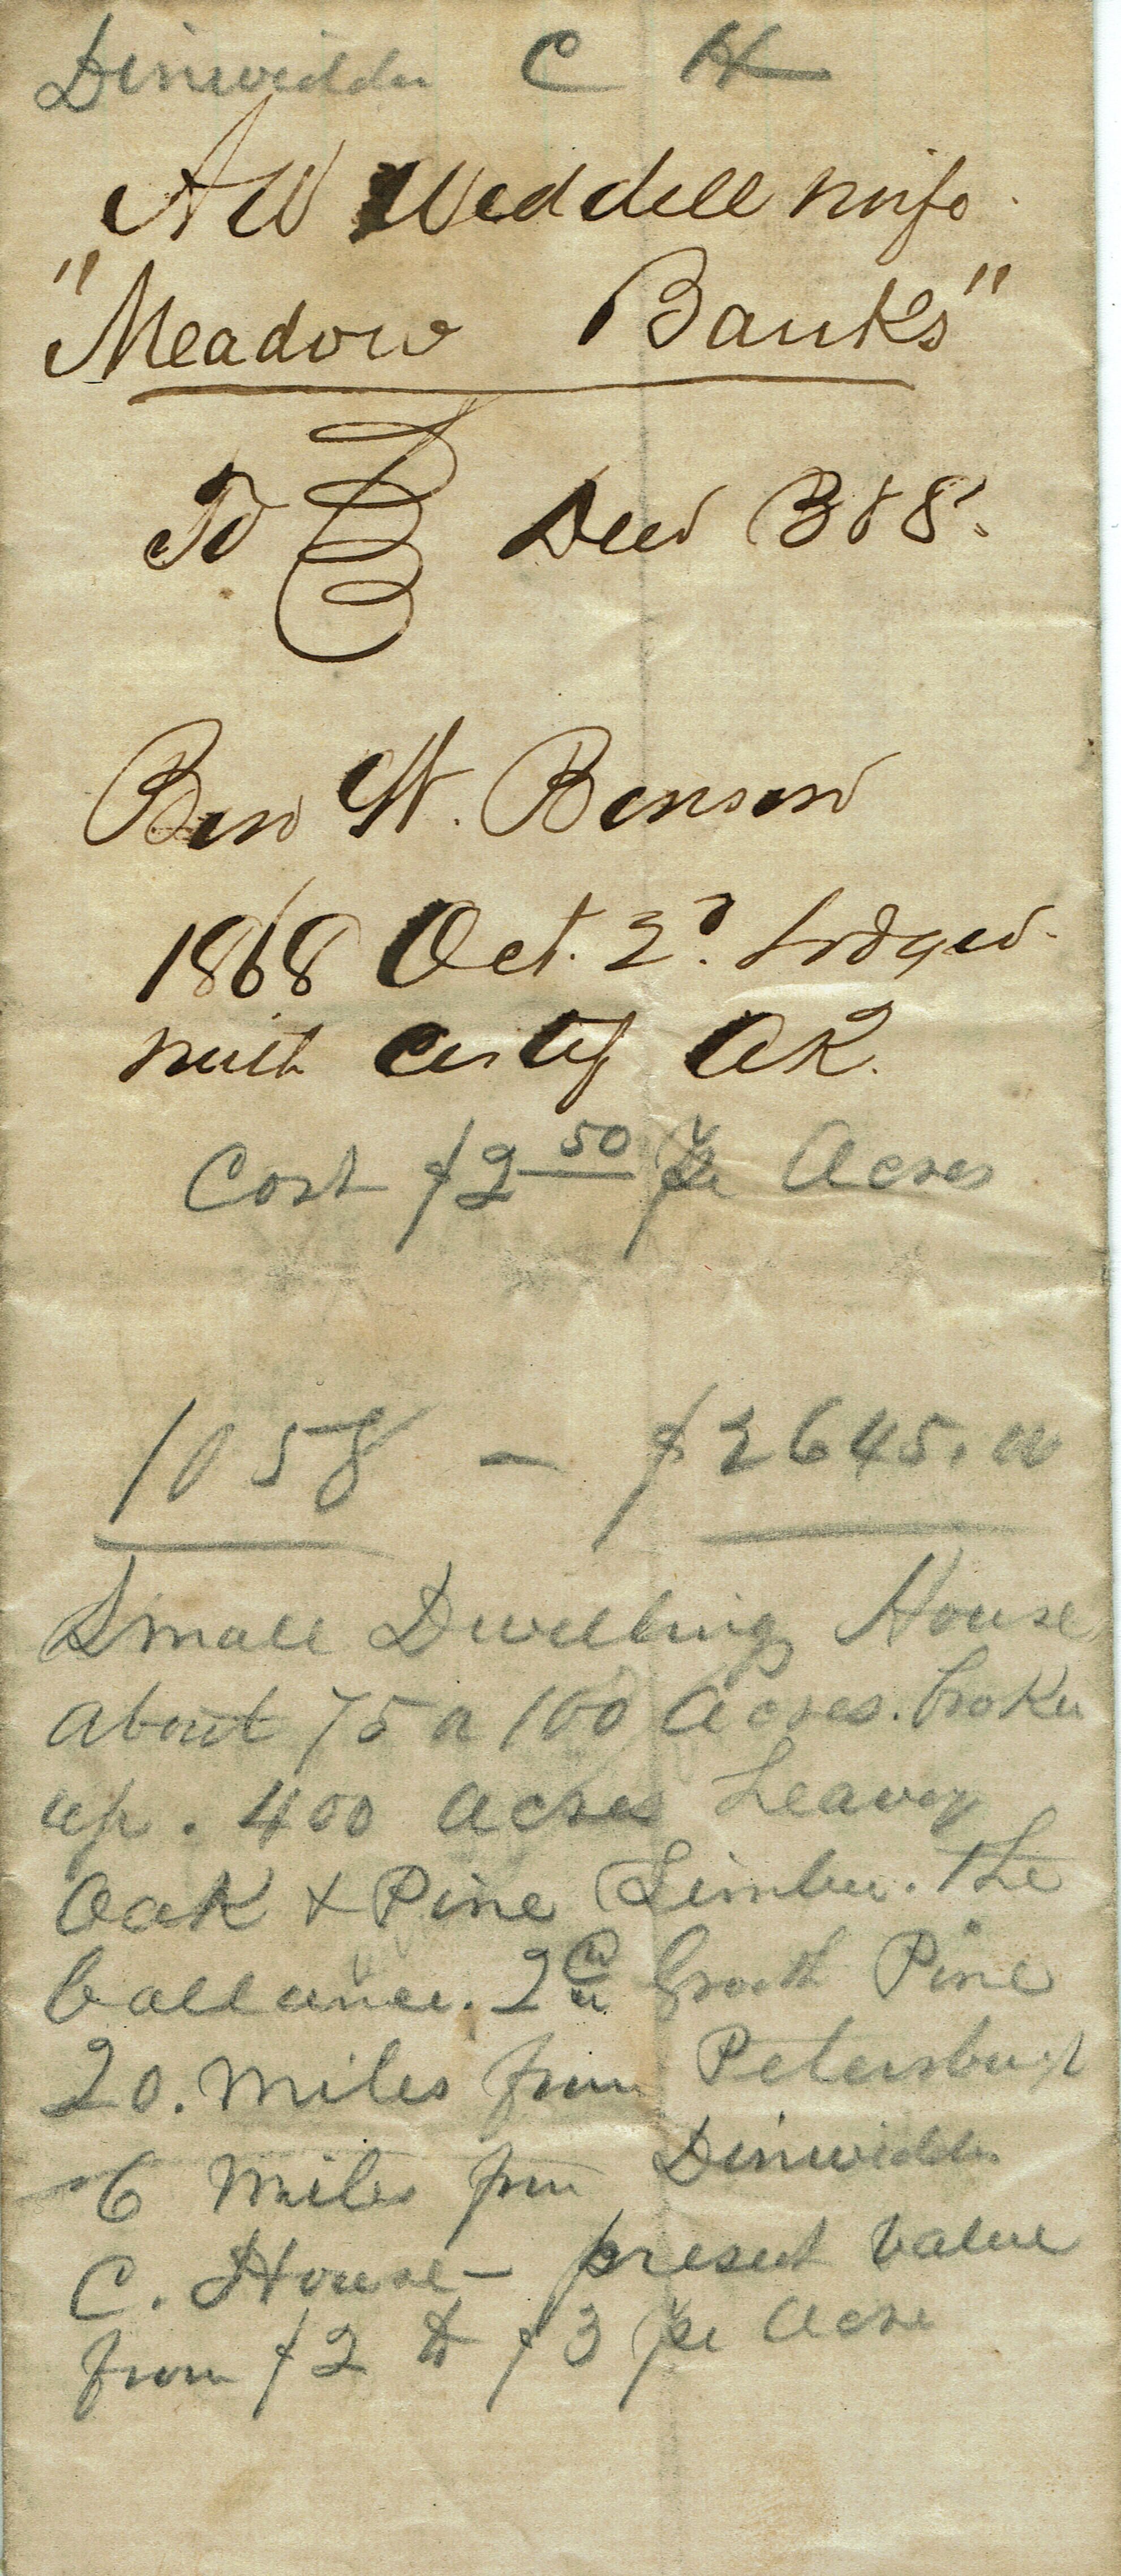 Dinwiddie C H
A W Weddell & wife
"Meadow Banks"
To Deed B & S.
Benj. W. Benson
1868 Oct. 2d. Lodged
with certif
Cost $2 50 per Acres
1058 — $2645.00
Small Dwelling House
about 75 a 100 Acres. broken
up. 400 acres heavy
Oak & Pine Timber. The
ballance. 2 Growth Pine
20. miles from Petersburg
6 miles from Dinwiddie
C. House — present value
from $2 to $3 per acre